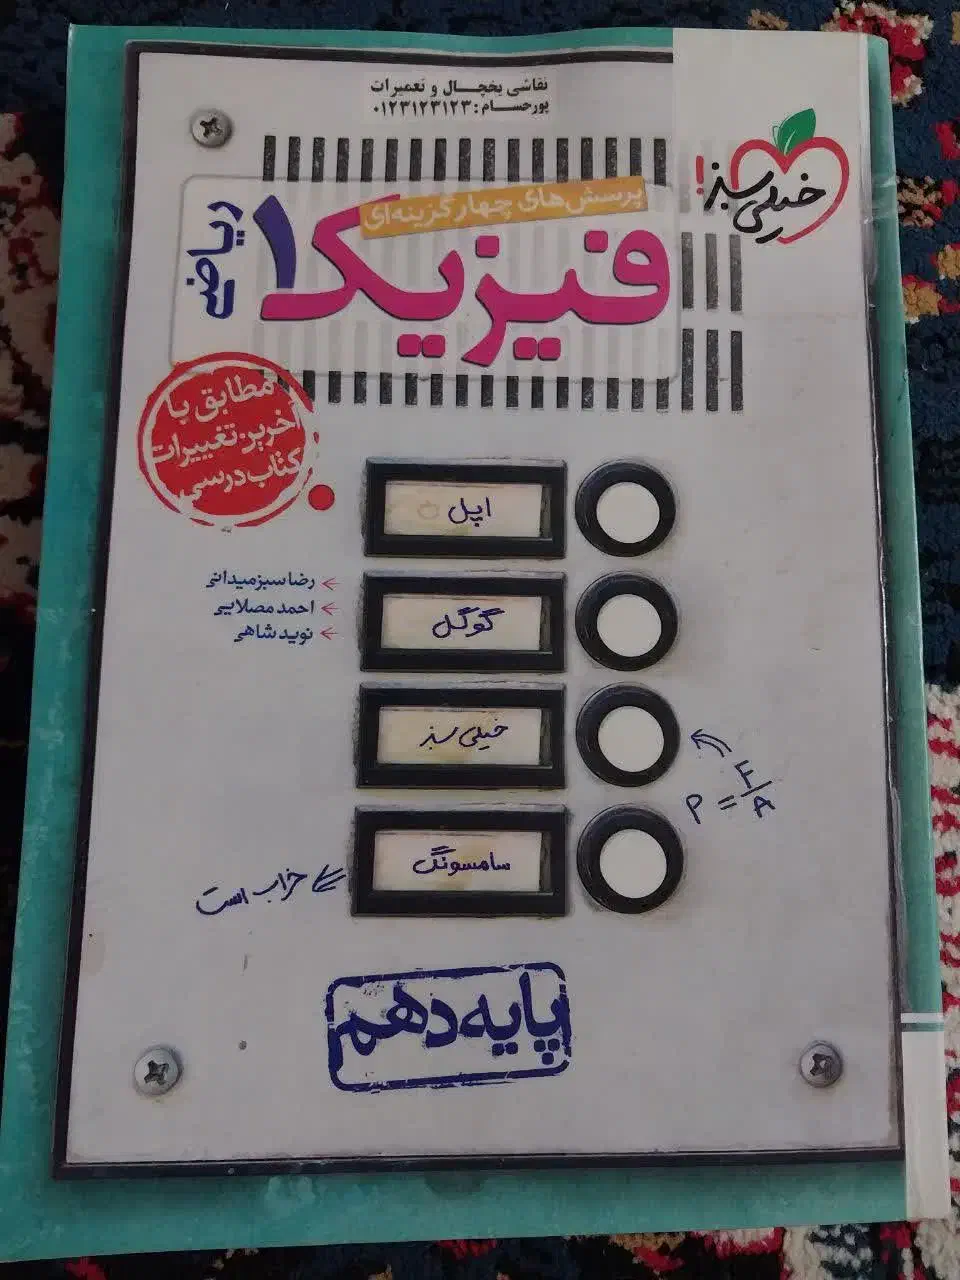 نقاشی یخچال و تعمیرات
پورحسام: ۰۱۲۳۱۲۳۱۲۳
خیلی سبز!
پرسش‌های چهارگزینه‌ای
فیزیک ۱
ریاضی
مطابق با
آخرین تغییرات
کتاب درسی
اپل
رضا سبزمیدانی
احمد مصلایی
نوید شاهی
گوگل
خیلی سبز
P = F/A
سامسونگ
خراب است
پایه دهم